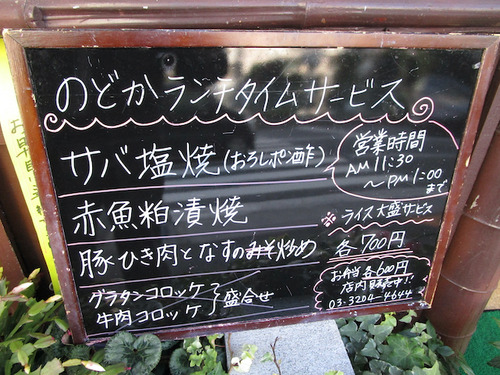 のどかランチタイムサービス
サバ塩焼(おろしポン酢)
赤魚粕漬焼
豚ひき肉となすのみそ炒め
グラタンコロッケ
牛肉コロッケ
盛合せ
営業時間
AM 11:30
～PM 1:00
まで
※ライス大盛サービス
各700円
お弁当各600円
店内販売中!!
03-3204-4644